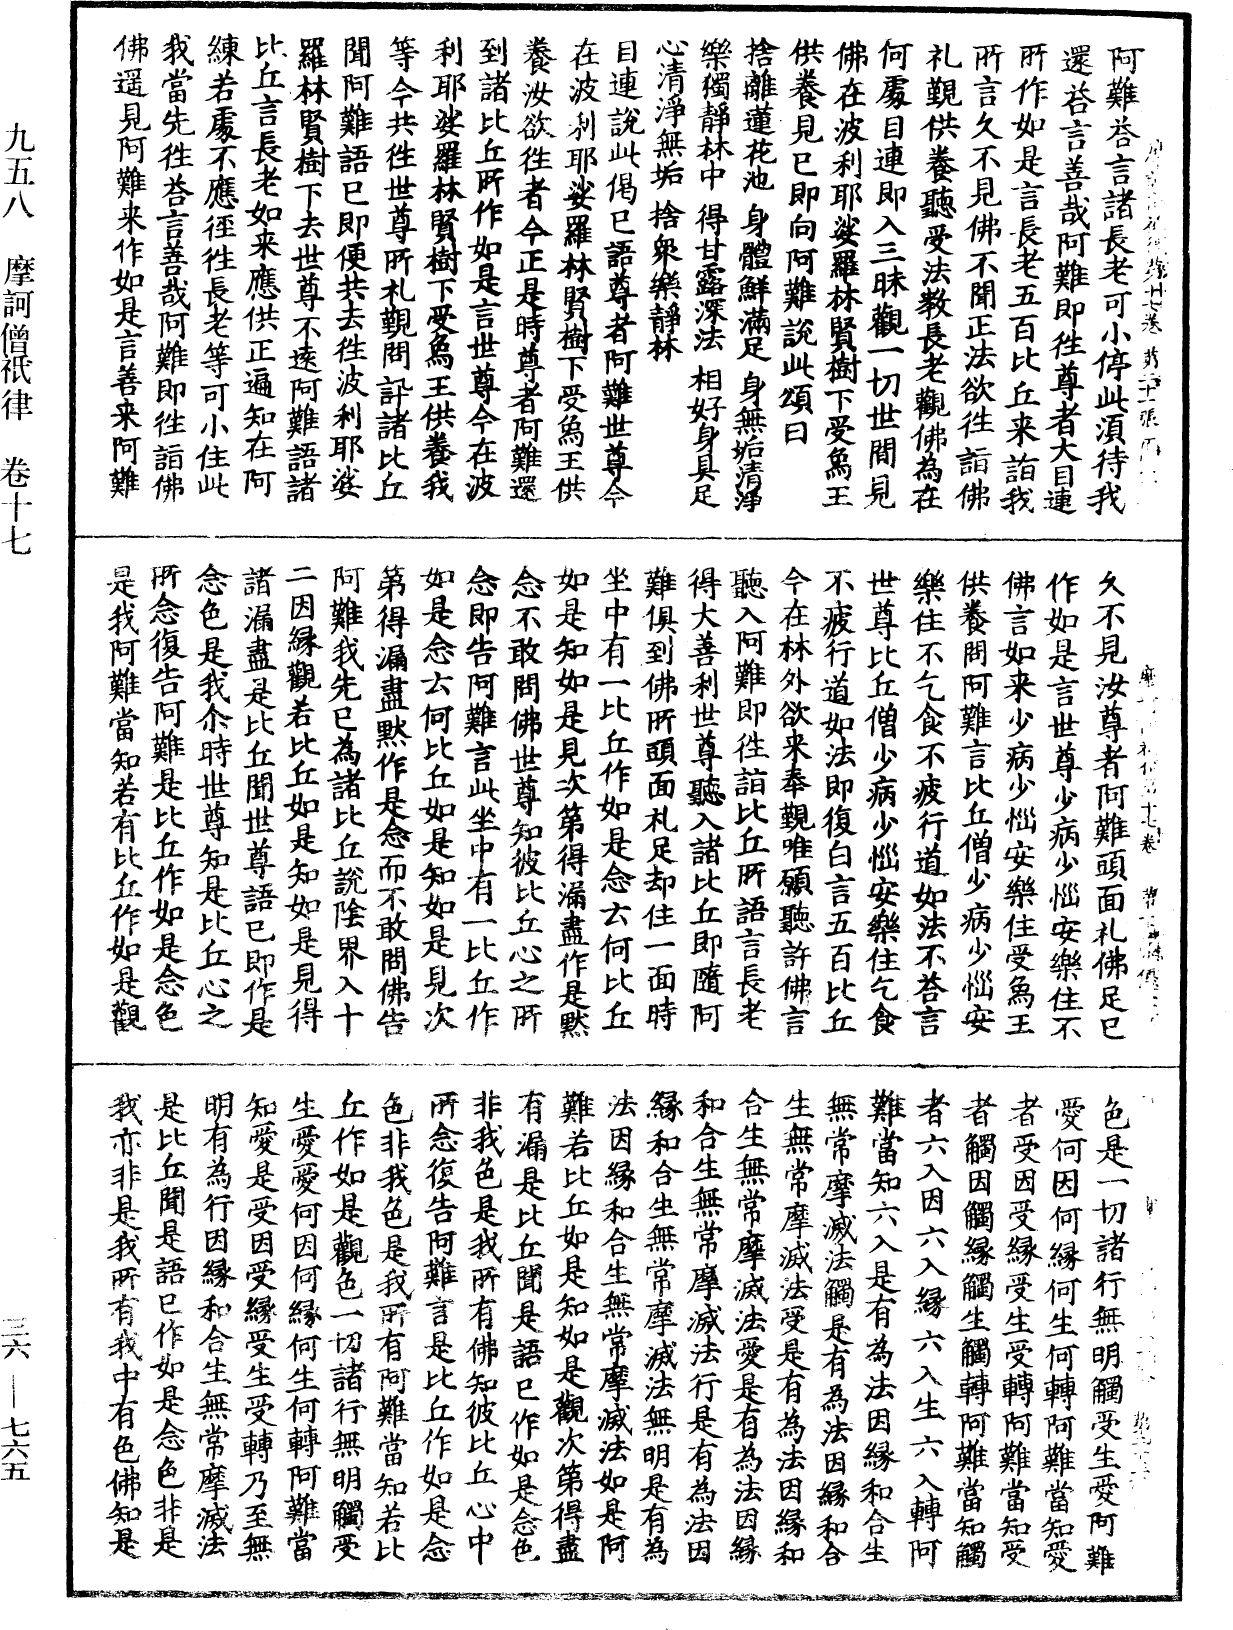 阿難荅言諸長老可小停此湏待我
還荅言善哉阿難即徃尊者大目連
所作如是言長老五百比丘来詣我
所言久不見佛不聞正法欲徃詣佛
礼覲供養聽受法教長老觀佛為在
何處目連即入三昧觀一切世間見
佛在波利耶娑羅林賢樹下受鳥王
供養見已即向阿難說此頌曰
捨離蓮花池　身體鮮滿足　身無垢清淨
樂獨靜林中　得甘露深法　相好身具足
心清淨無垢　捨衆樂靜林
目連說此偈已語尊者阿難世尊今
在波利耶娑羅林賢樹下受鳥王供
養汝欲徃者今正是時尊者阿難還
到諸比丘所作如是言世尊今在波
利耶娑羅林賢樹下受鳥王供養我
等今共徃世尊所礼覲問訊諸比丘
聞阿難語已即便共去徃波利耶娑
羅林賢樹下去世尊不遠阿難語諸
比丘言長老如来應供正遍知在阿
練若處不應徑徃長老等可小住此
我當先徃荅言善哉阿難即徃詣佛
佛遥見阿難来作如是言善来阿難
久不見汝尊者阿難頭面礼佛足已
作如是言世尊少病少惱安樂住不
佛言如来少病少惱安樂住受鳥王
供養問阿難言比丘僧少病少惱安
樂住不乞食不疲行道如法不荅言
世尊比丘僧少病少惱安樂住乞食
不疲行道如法即復白言五百比丘
今在林外欲来奉覲唯願聽許佛言
聽入阿難即徃詣比丘所語言長老
得大善利世尊聽入諸比丘即隨阿
難俱到佛所頭面礼足却住一面時
坐中有一比丘作如是念云何比丘
如是知如是見次第得漏盡作是黙
念不敢問佛世尊知彼比丘心之所
念即告阿難言此坐中有一比丘作
如是念云何比丘如是知如是見次
第得漏盡黙作是念而不敢問佛告
阿難我先已為諸比丘說陰界入十
二因緣觀若比丘如是知如是見得
諸漏盡是比丘聞世尊語已即作是
念色是我尒時世尊知是比丘心之
所念復告阿難是比丘作如是念色
是我阿難當知若有比丘作如是觀
色是一切諸行無明觸受生愛阿難
愛何因何緣何生何轉阿難當知愛
者受因受緣受生受轉阿難當知受
者觸因觸緣觸生觸轉阿難當知觸
者六入因六入緣六入生六入轉阿
難當知六入是有為法因緣和合生
無常摩滅法觸是有為法因緣和合
生無常摩滅法受是有為法因緣和
合生無常摩滅法愛是有為法因緣
和合生無常摩滅法行是有為法因
緣和合生無常摩滅法無明是有為
法因緣和合生無常摩滅法如是阿
難若比丘如是知如是觀次第得盡
有漏是比丘聞是語已作如是念色
非我色是我所有佛知彼比丘心中
所念復告阿難言是比丘作如是念
色非我色是我所有阿難當知若比
丘作如是觀色一切諸行無明觸受
生愛愛何因何緣何生何轉阿難當
知愛是受因受緣受生受轉乃至無
明有為行因緣和合生無常摩滅法
是比丘聞是語已作如是念色非是
我亦非是我所有我中有色佛知是
九五八　摩訶僧祇律　卷十七
三六—七六五